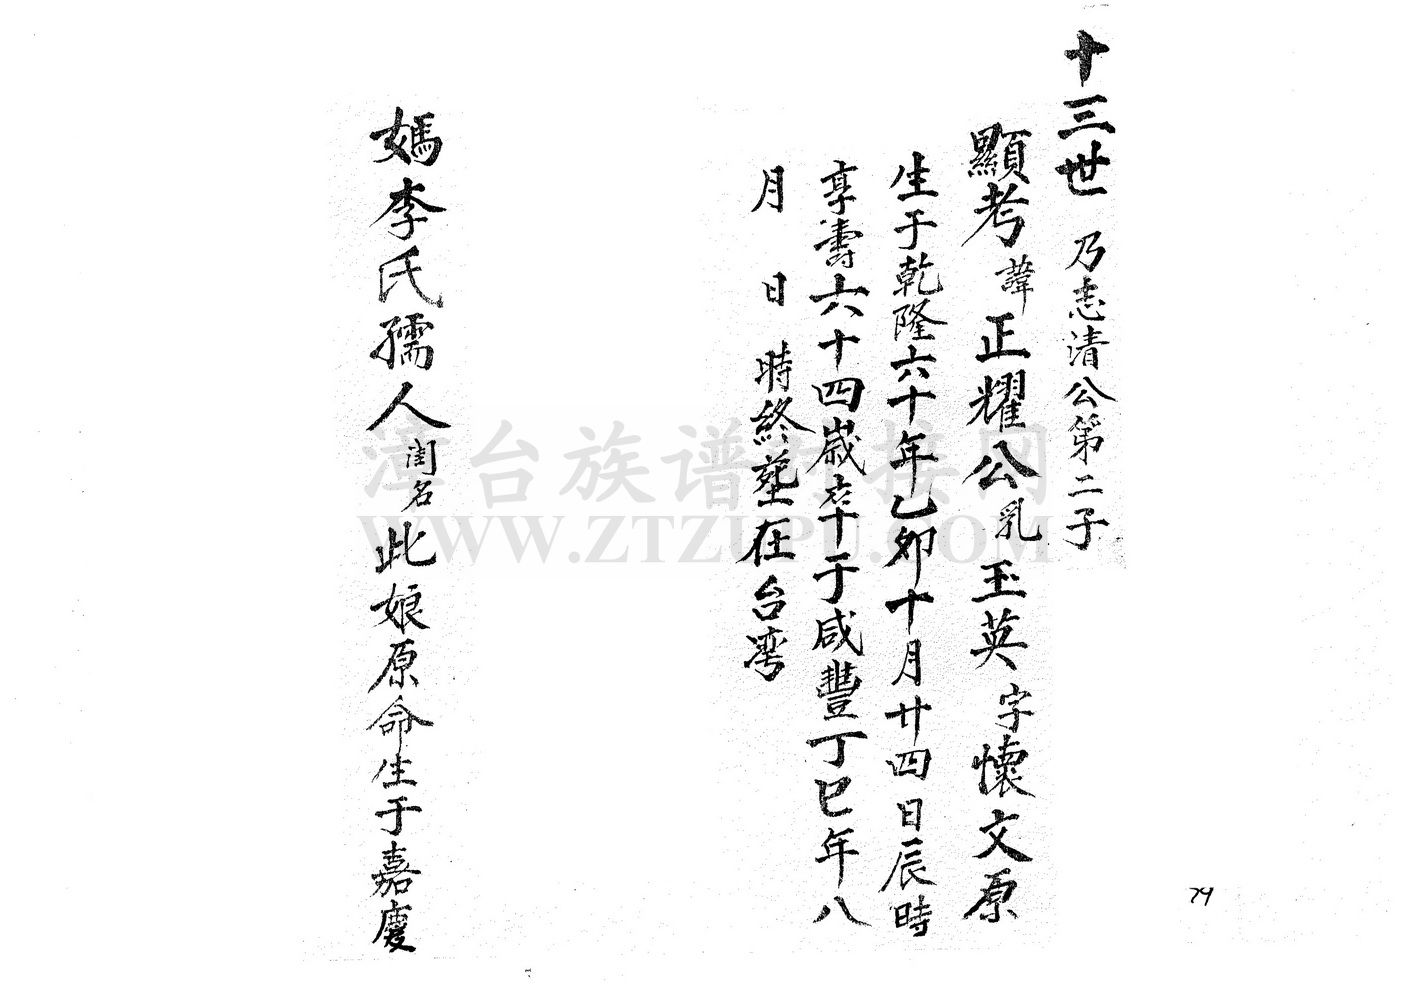 十三世 乃志清公第二子
顯考諱正耀公乳玉英字懷文原
生于乾隆六十年乙卯十月廿四日辰時
享壽六十四歲卒于咸豐丁巳年八
月 日 時終塟在台湾
媽李氏孺人閨名此娘原命生于嘉慶
79
漳台族谱对接网
WWW.ZTZUPU.COM